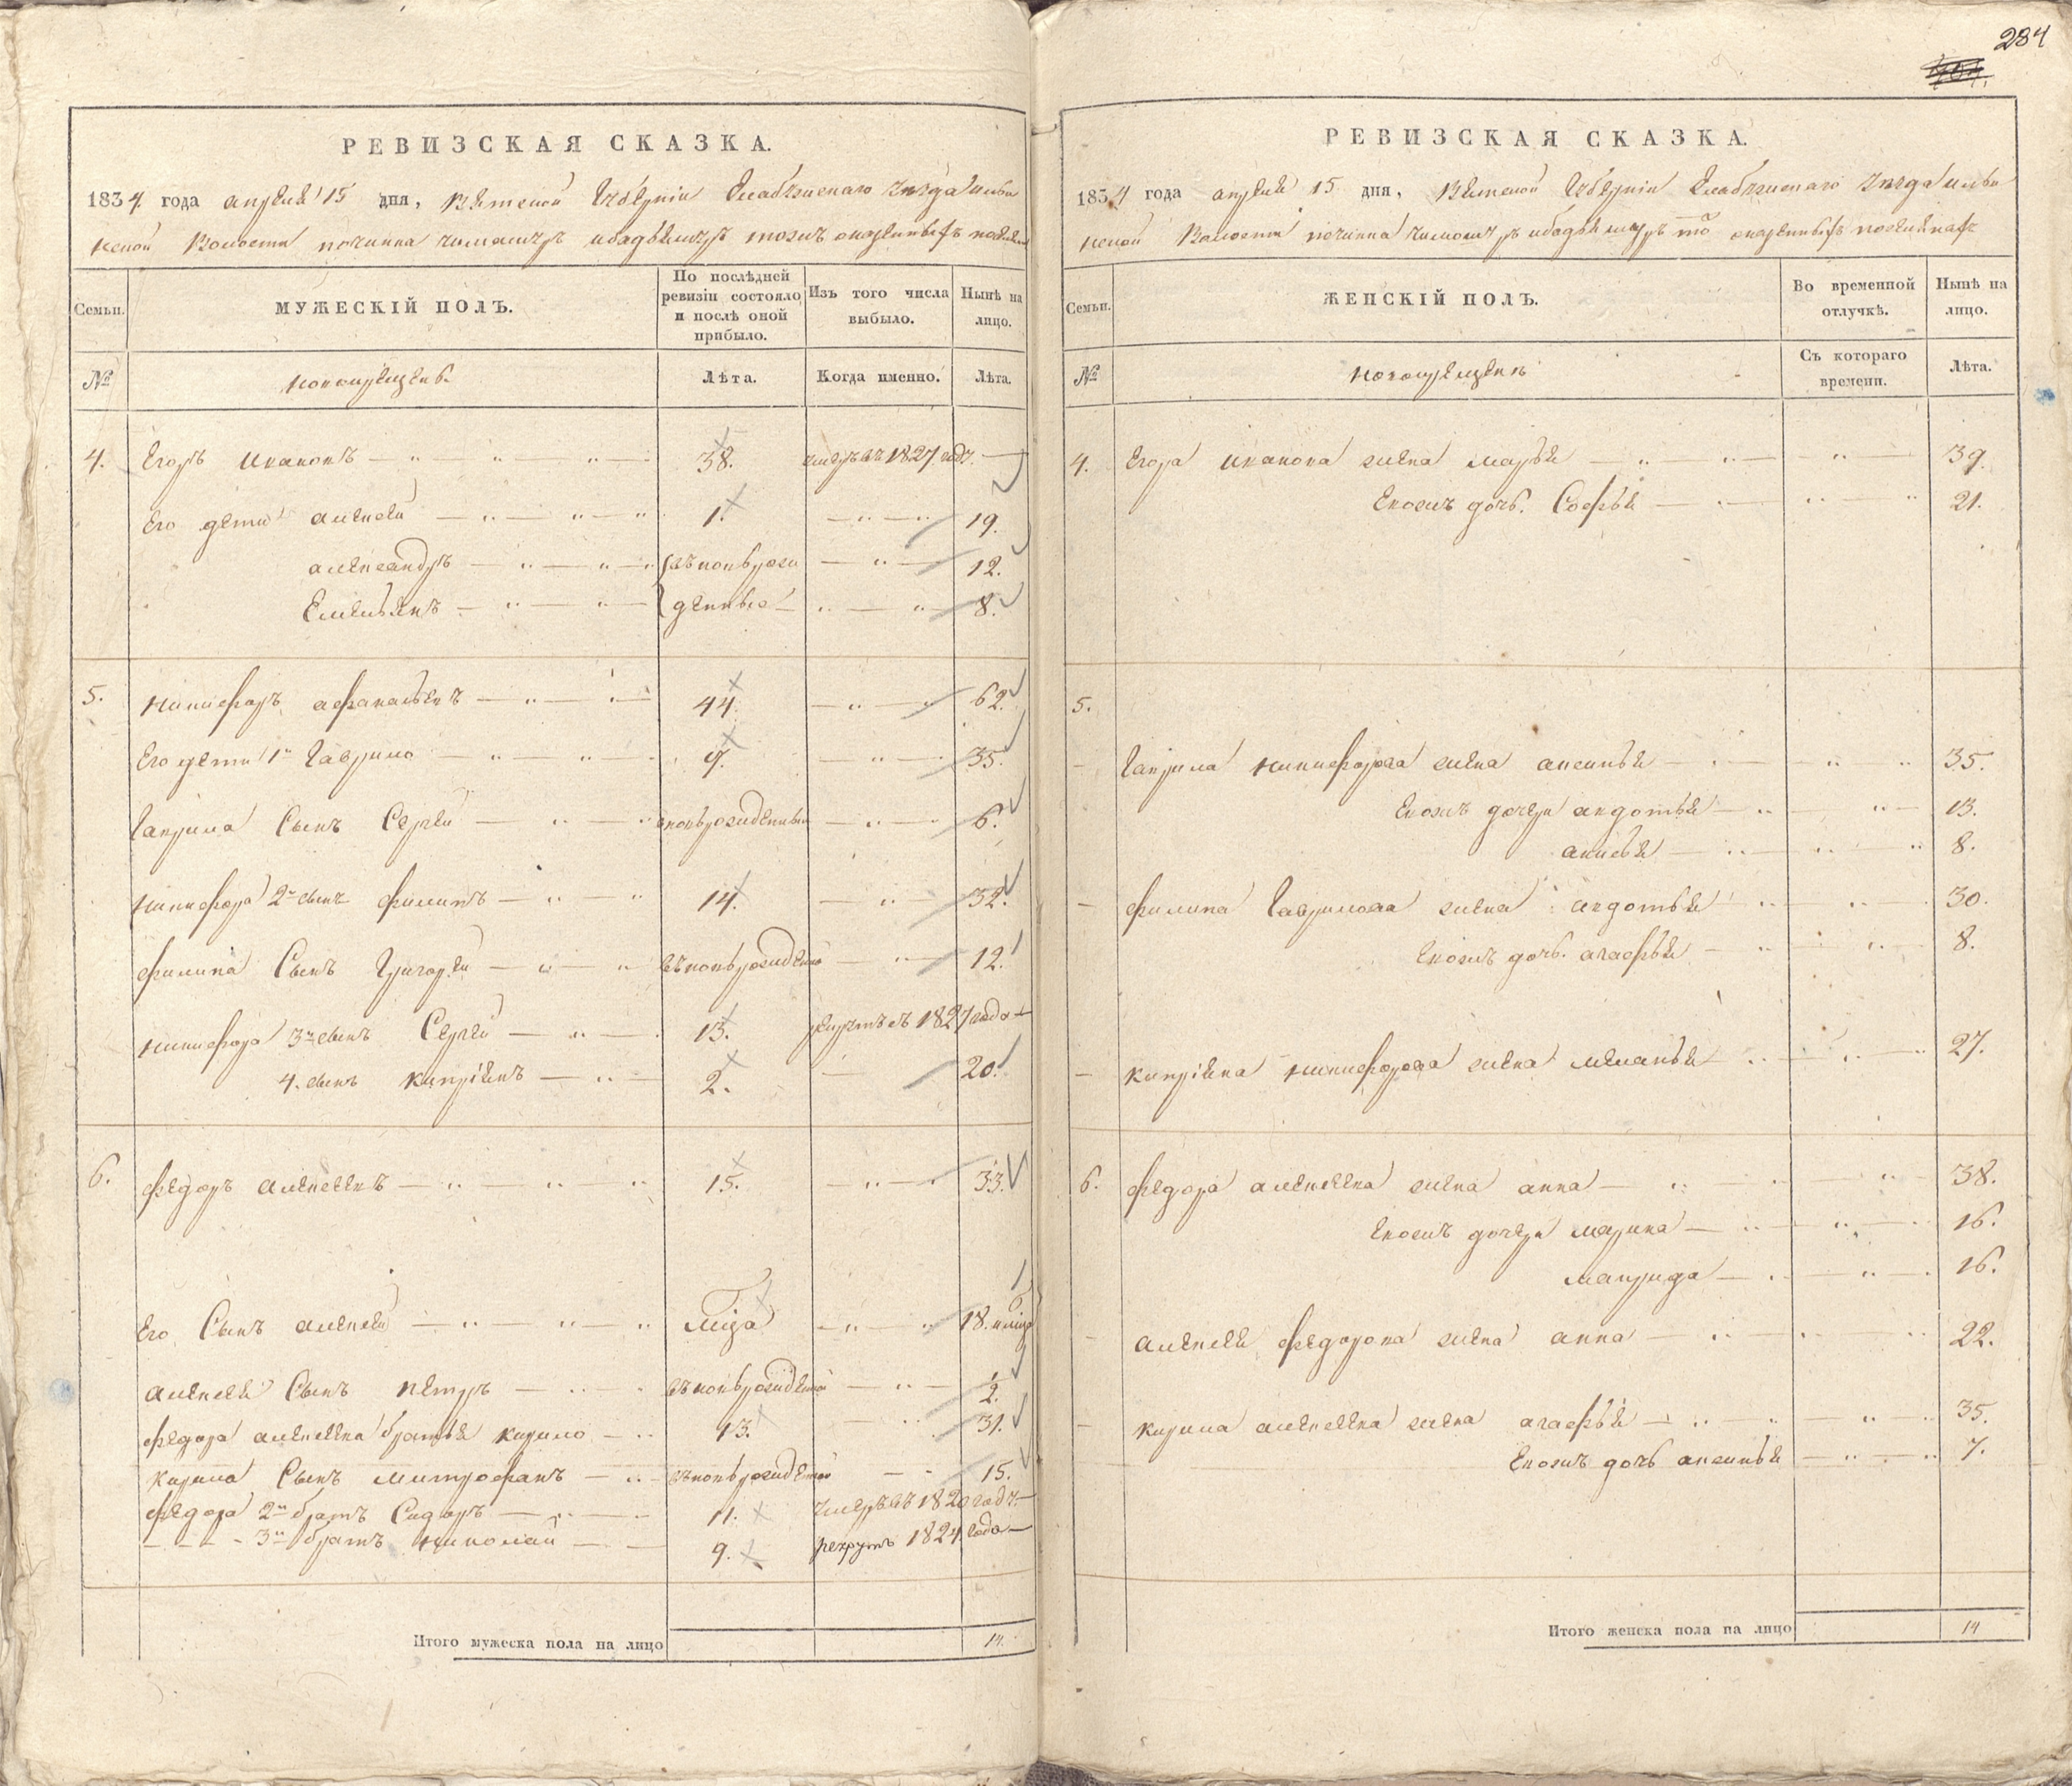 284
РЕВИЗСКАЯ СКАЗКА.
1834 года апреля 15 дня, Вятской Губерніи Елабужскаго уезда
волости починка
Семьи.
МУЖЕСКІЙ ПОЛЪ.
По послѣдней ревизіи состояло и послѣ оной прибыло.
Изъ того числа выбыло.
Нынѣ на лицо.
№
новокрещенъ.
Лѣта.
Когда именно.
Лѣта.
4. Егоръ Ивановъ 38. умеръ въ 1827 году.
Его дети алексей 1. 19.
александръ въновьрож 12.
Емельянъ денные 8.
5. Никифоръ афанасьевъ 44. 62.
Его дети 1й Гаврило 9. 35.
Гаврила Сынъ Сергей вновьрожденный 6.
Никифора 2й сынъ филипъ 14. 32.
филипа Сынъ Григорей вьновьрожденной 12.
Никифора 3й сынъ Сергей 13. рекрутъ съ 1827 года
4. сынъ Купріянъ 2. 20.
6. федоръ алексеевъ 15. 33.
Его Сынъ алексей 18.
алексея Сынъ Петръ въновьрожденной 2.
федора алексеева братья Кирило 13. 31.
Кирила Сынъ Митрофанъ въновьрожденной 15.
федора 2й братъ Сидоръ 11. умеръ въ 1820 году
3й братъ николай 9. рекрутъ 1824 года
Итого мужеска пола на лицо 14.
РЕВИЗСКАЯ СКАЗКА.
1834 года апреля 15 дня, Вятской Губерніи Елабужскаго уезда
Волости починка
Семьи.
ЖЕНСКІЙ ПОЛЪ.
Во временной отлучкѣ.
Нынѣ на лицо.
№
новокрещенъ
Съ котораго времени.
Лѣта.
4. Егора иванова жена марья 39.
Евожъ дочь. Софья 21.
5.
Гаврила Никифорова жена аксинья 35.
Евожъ дочери авдотья 13.
анисья 8.
филипа Гаврилова жена авдотья 30.
Евожъ дочь. агафья 8.
Купріяна Никифорова жена меланья 27.
6. федора алексеева жена анна 38.
Евожъ дочери марина 16.
маврида 16.
алексея федорова жена анна 22.
Кирила алексеева жена агафья 35.
Евожъ дочь аксинья 7.
Итого женска пола на лицо 14